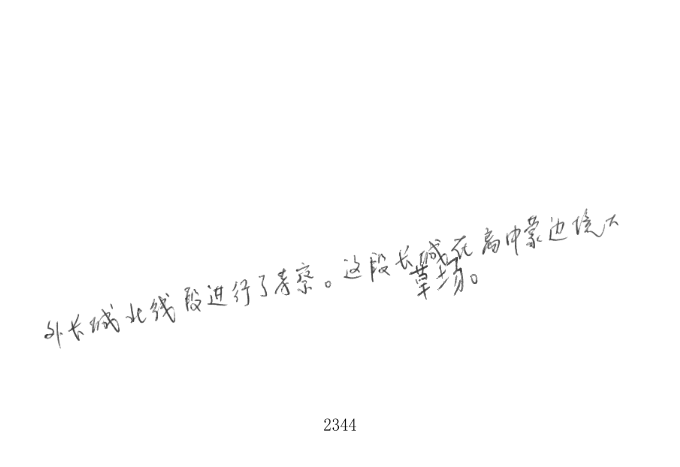 外长城北线段进行了考察。这段长城在离中蒙边境大
草场。
2344